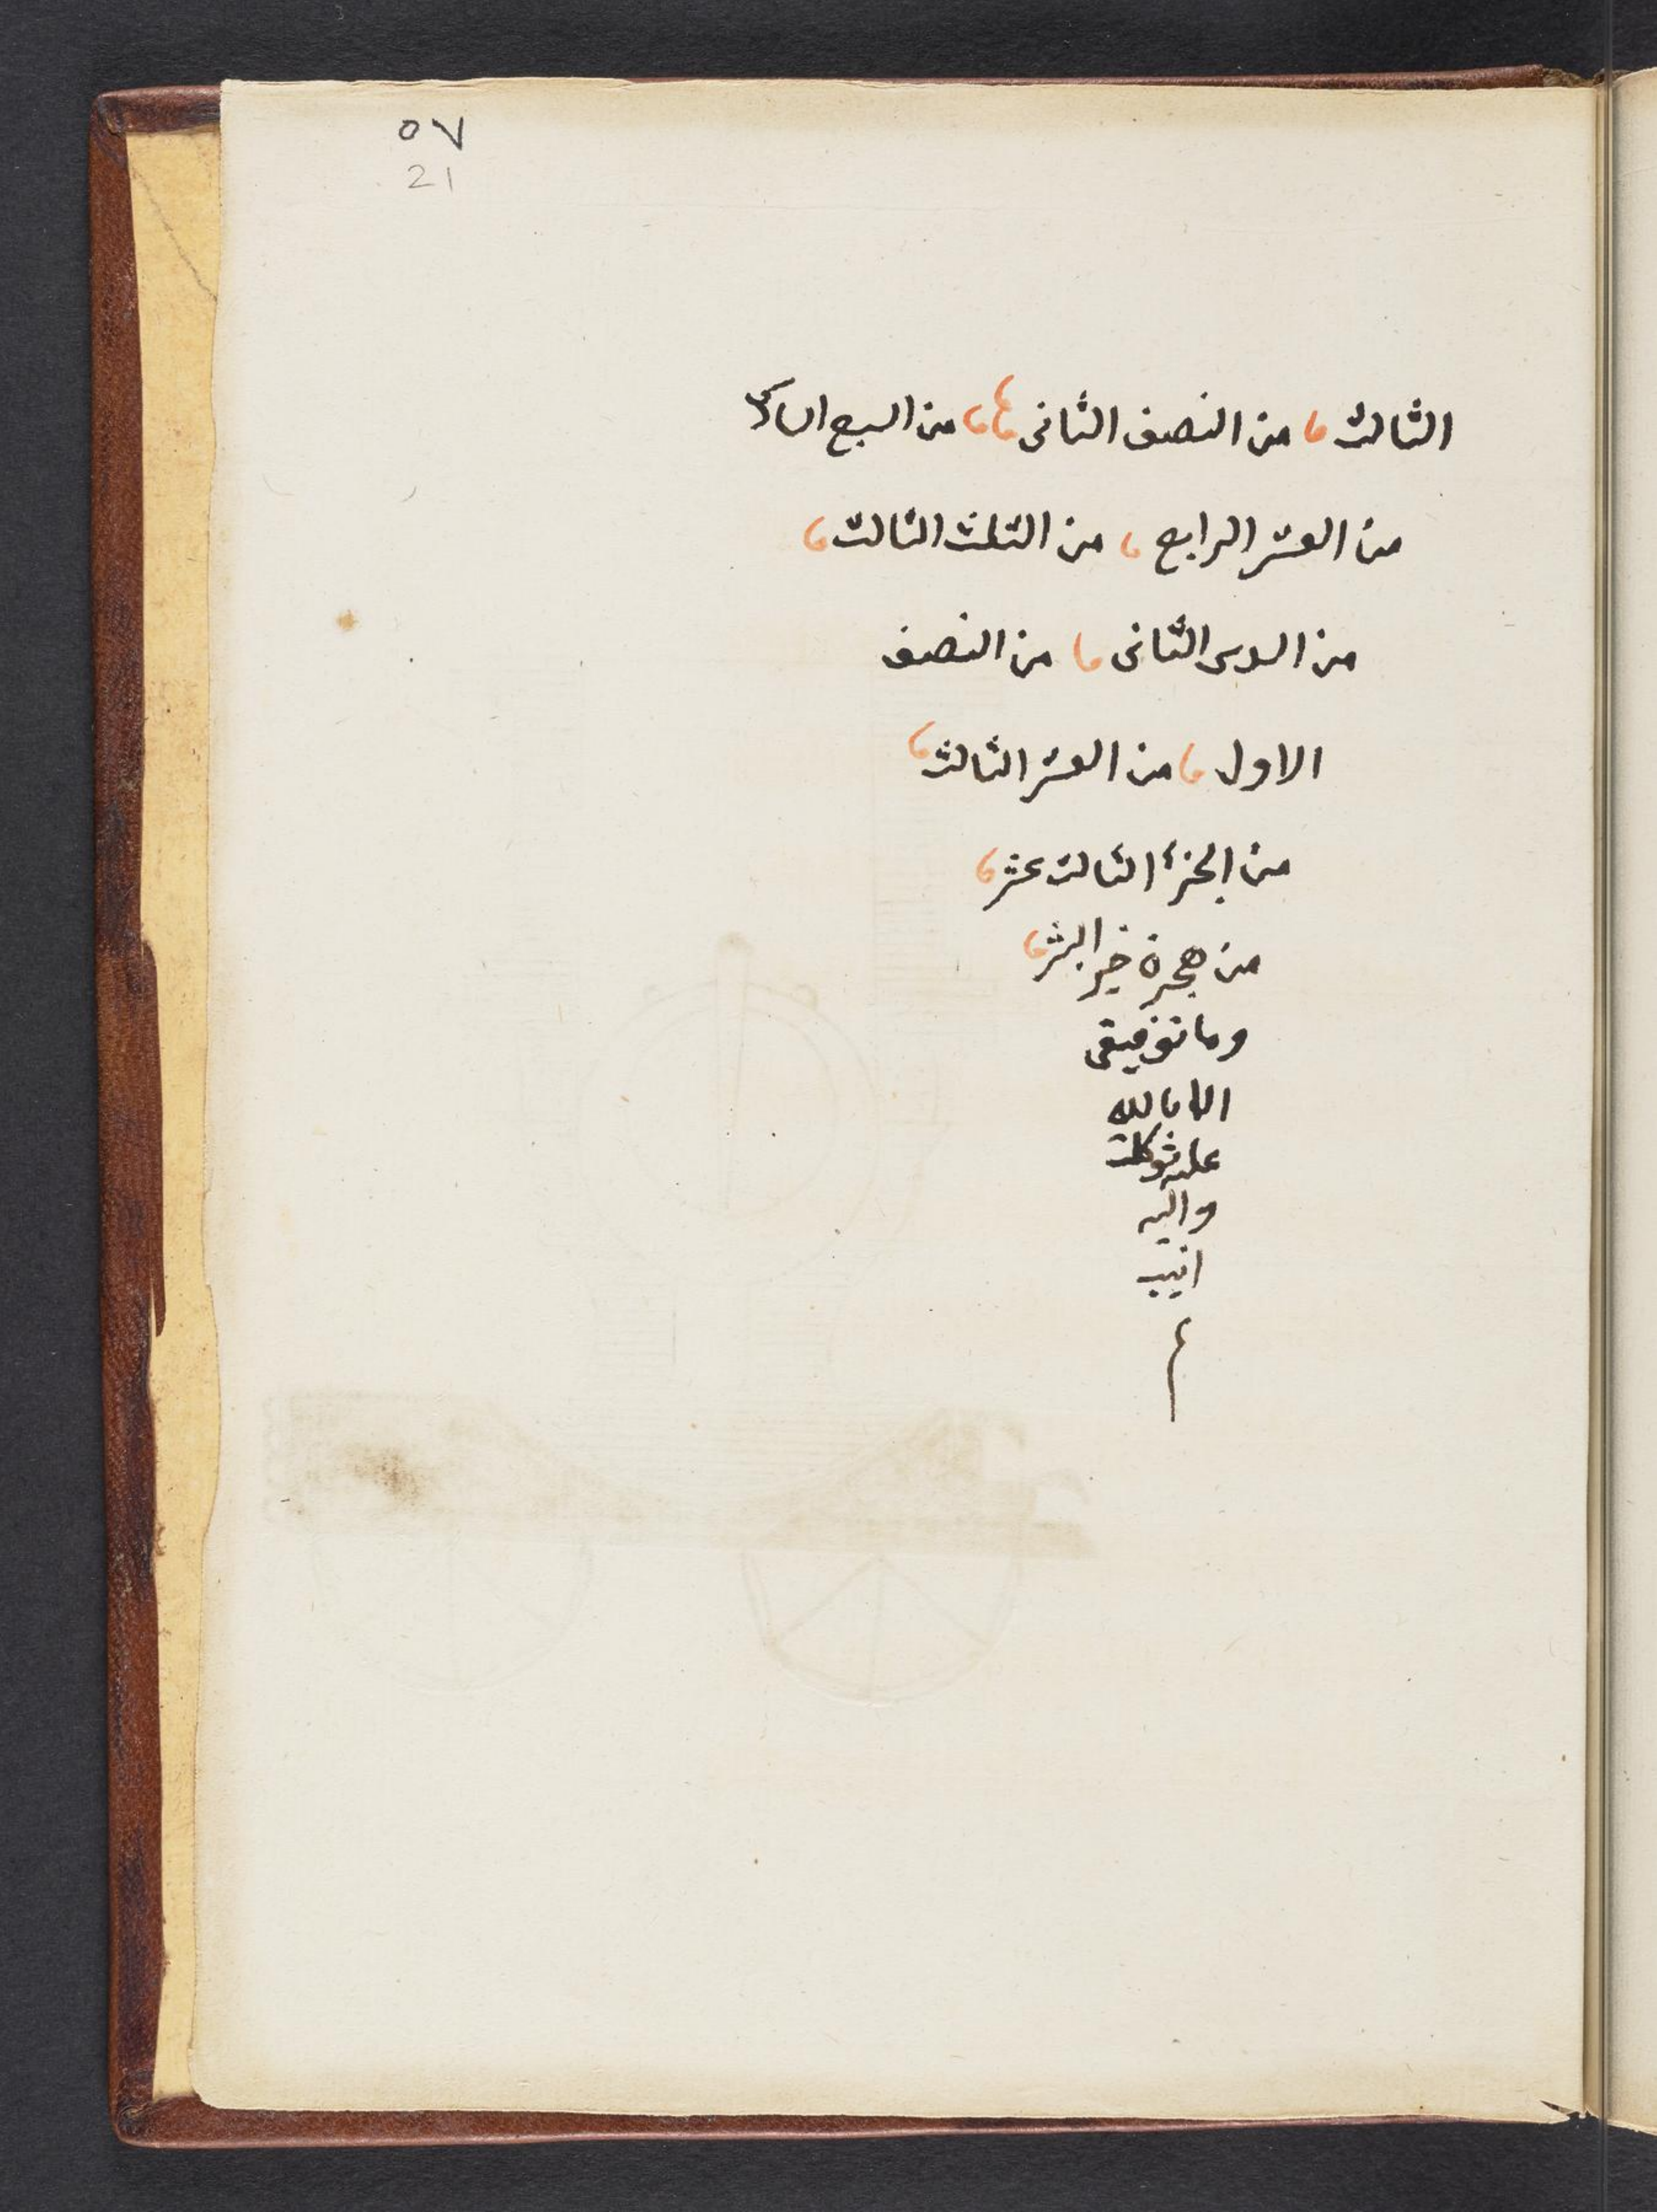 ٥٧
21
الثالث من النصف الثانى من السبع السادس
من العشر الرابع من الثلث الثالث
من السدس الثانى من النصف
الاول من العشر الثالث
من الجزء الثالث عشر
من هجرة خير البشر
وما توفيقى
الا بالله
عليه توكلت
واليه
انيب
م